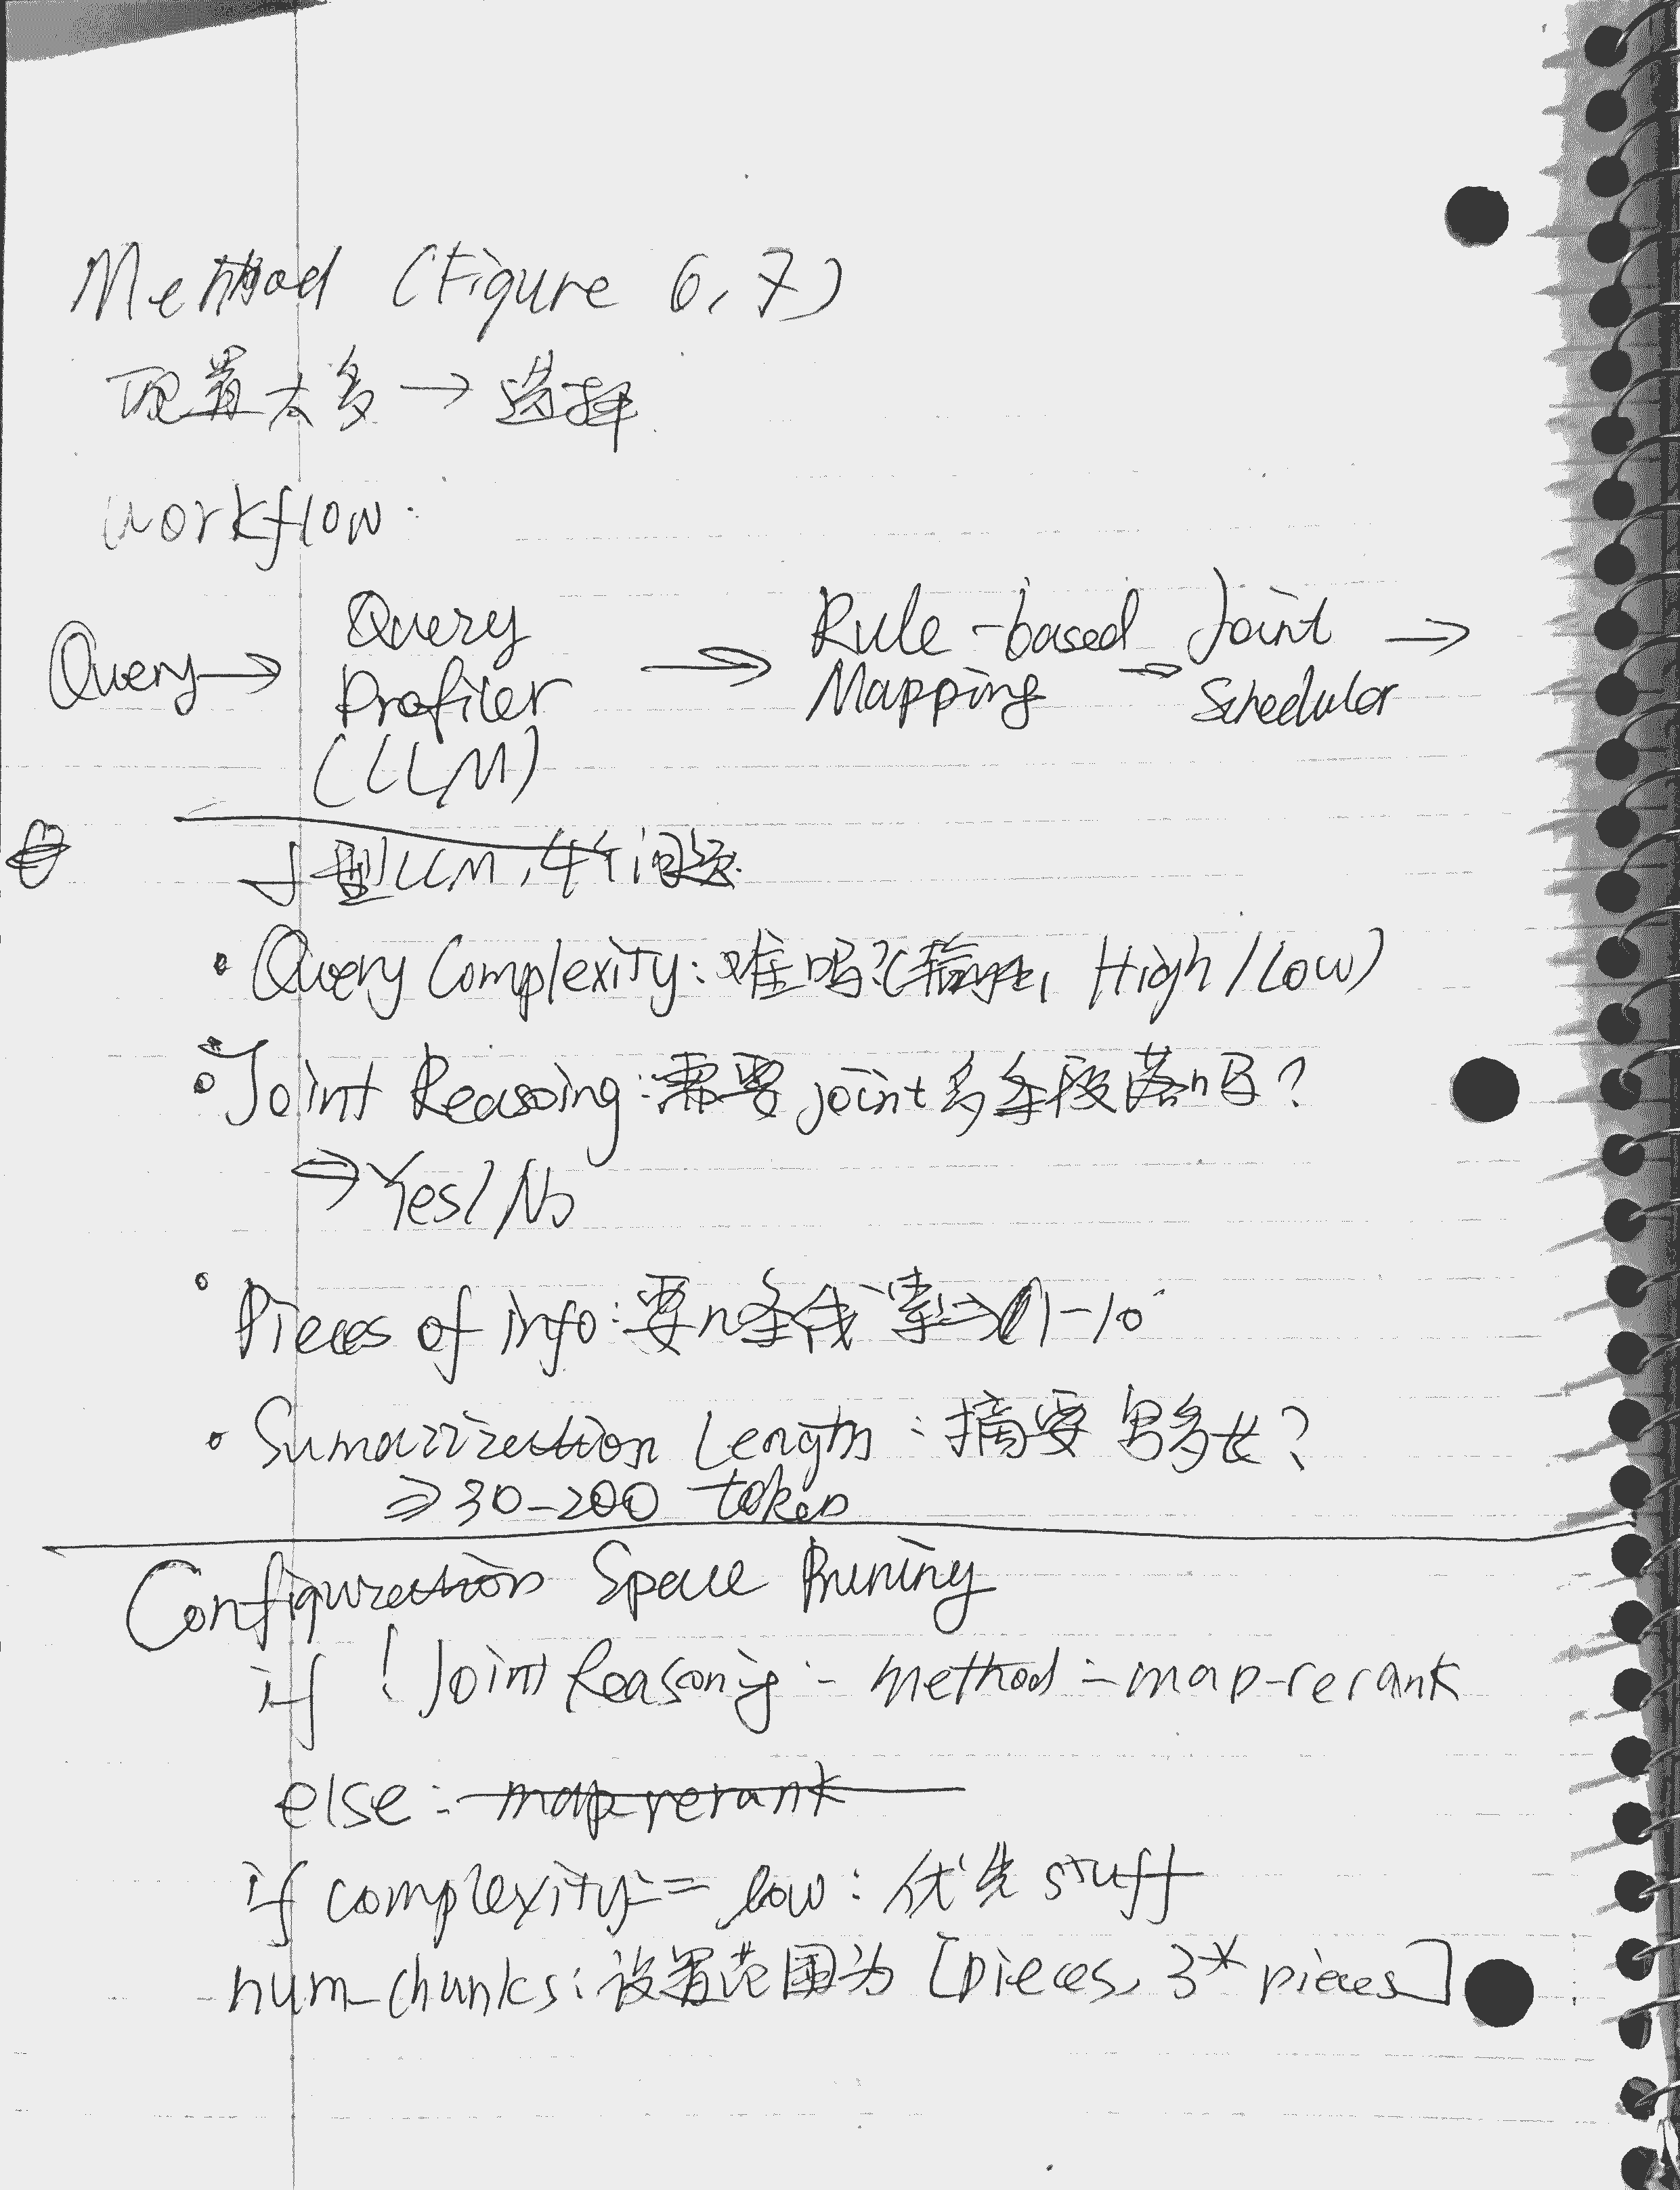 Method (Figure 6, 7)
配置太多 → 选择
workflow:
Query → Query Profiler (LLM) → Rule-based Mapping → Joint Schedular →
小型LLM, 4个问题
• Query Complexity: 难吗? ( High / Low)
• Joint Reasoing: 需要 joint 多条段落吗?
⇒ Yes / No
• Pieces of info: 要n条线索 ⇒ 1-10
• Sumarrization Length: 摘要 写多长?
⇒ 30-200 token
Configuration Space Pruning
if ! Joint Reasoning: method = map-rerank
else: map-rerank
if complexity == low: 优先 stuff
num-chunks: 设置范围为 [pieces, 3* pieces]